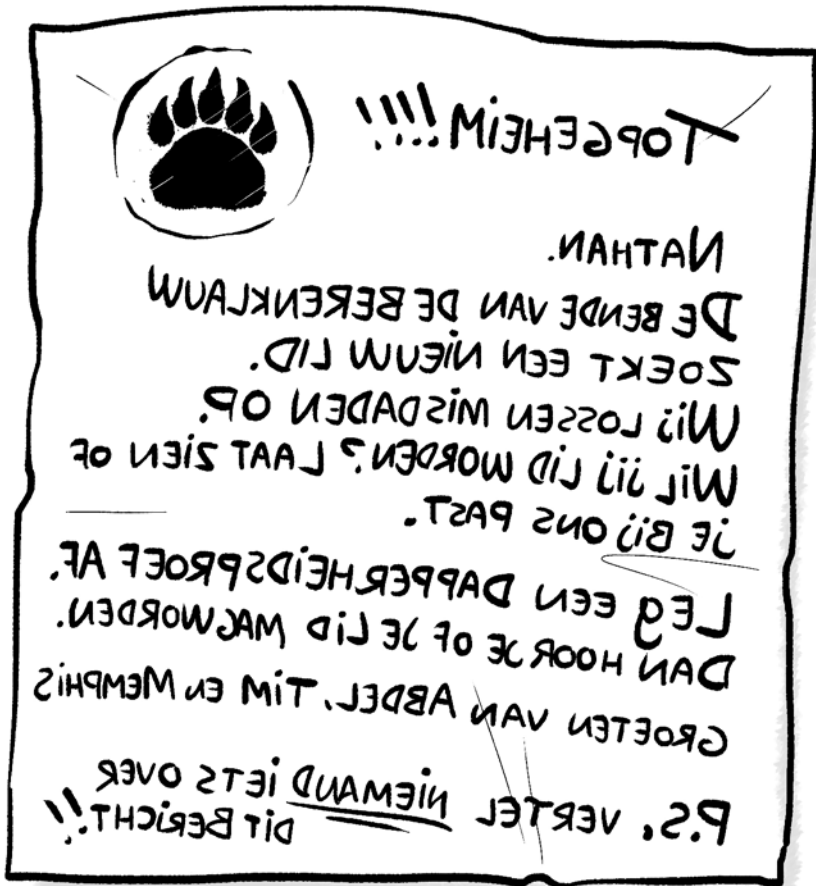 TOPGEHEIM!!!!
NATHAN.
DE BENDE VAN DE BERENKLAUW
ZOEKT EEN NIEUW LID.
WIJ LOSSEN MISDADEN OP.
WIL JIJ LID WORDEN? LAAT ZIEN OF
JE BIJ ONS PAST.
LEG EEN DAPPERHEIDSPROEF AF.
DAN HOOR JE OF JE LID MAG WORDEN.
GROETEN VAN ABDEL, TIM EN MEMPHIS
P.S. VERTEL NIEMAND IETS OVER
DIT BERICHT!!